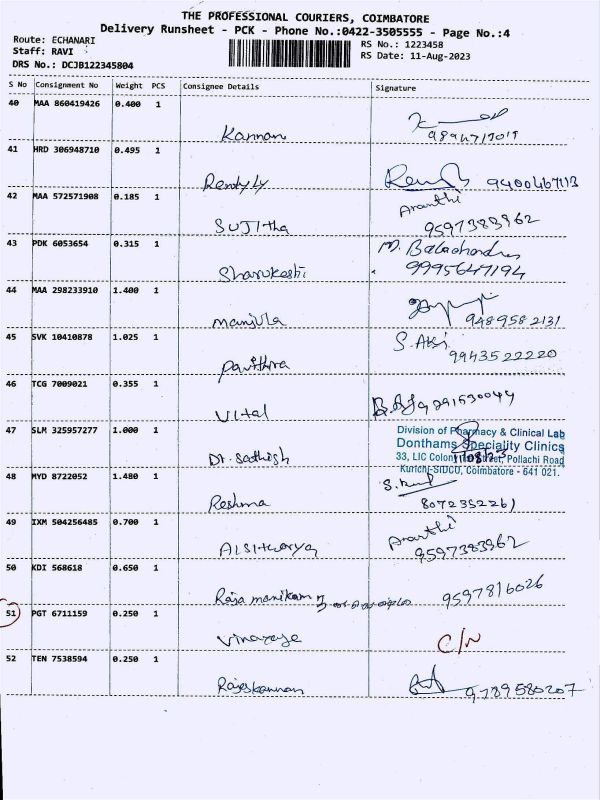 THE PROFESSIONAL COURIERS, COIMBATORE
Delivery Runsheet - PCK - Phone No.:0422-3505555 - Page No.:4
Route: ECHANARI
RS No.: 1223458
Staff: RAVI
RS Date: 11-Aug-2023
DRS No.: DCJB122345804
S No Consignment No Weight PCS Consignee Details Signature
40 MAA 860419426 0.400 1
Kannan
41 HRD 306948710 0.495 1
9400467113
42 MAA 572571908 0.185 1 Ananthi
SUJItha 9597383962
43 PDK 6053654 0.315 1 M. Balachandru
Sharukeshi 9995647194
44 MAA 298233910 1.400 1
manjula 9489582131
45 SVK 10410878 1.025 1
Pavithra 9943522220
46 TCG 7009021 0.355 1
Vital 9791530044
47 SLM 325957277 1.000 1 Division of Pharmacy & Clinical Lab
Donthams Speciality Clinics
Dr. Sathish 33, LIC Colony Street, Pollachi Road
Kurichi-SIDCO, Coimbatore - 641 021.
48 MYD 8722052 1.480 1
Reshma 8072352261
49 IXM 504256485 0.700 1 Ananthi
AISItwarya 9597383962
50 KDI 568618 0.650 1
Raja manikam 9597816026
51 PGT 6711159 0.250 1
Vinayaga C/N
52 TEN 7538594 0.250 1
Rajeskannan 9789580207